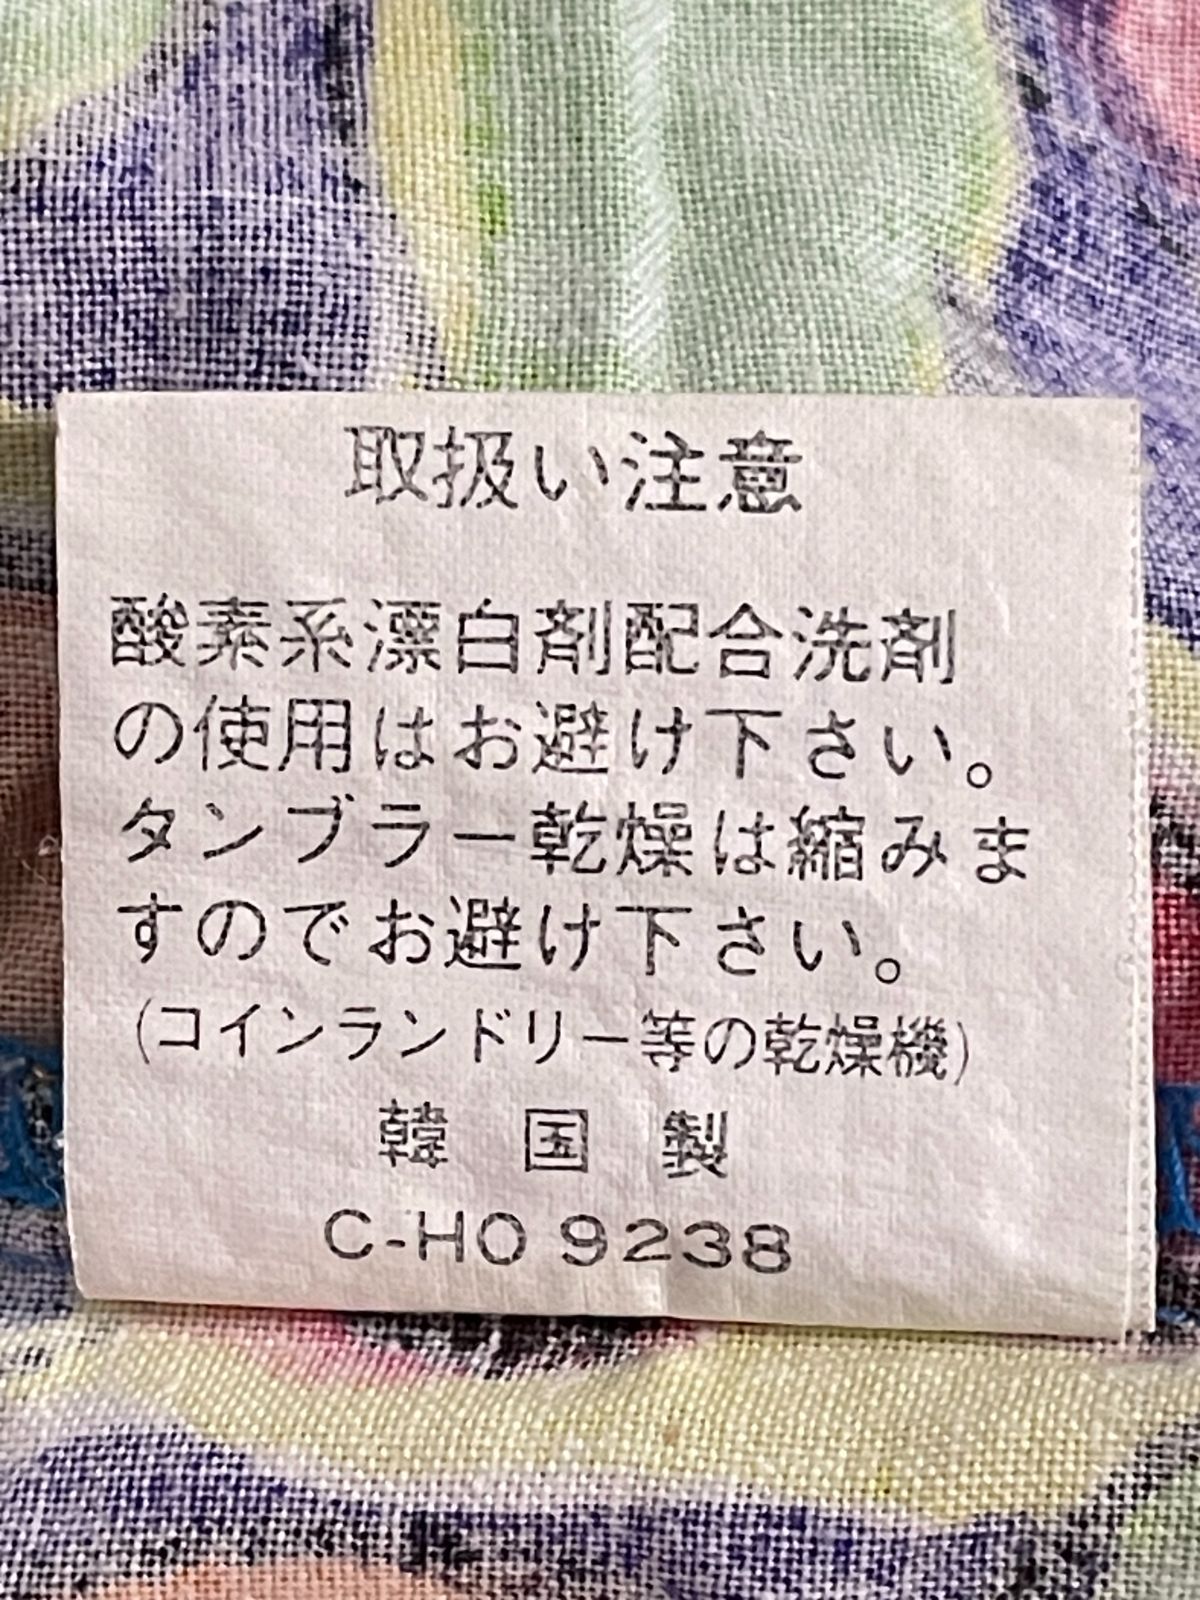 取扱い注意
酸素系漂白剤配合洗剤
の使用はお避け下さい。
タンブラー乾燥は縮みま
すのでお避け下さい。
(コインランドリー等の乾燥機)
韓 国 製
C-HO 9238